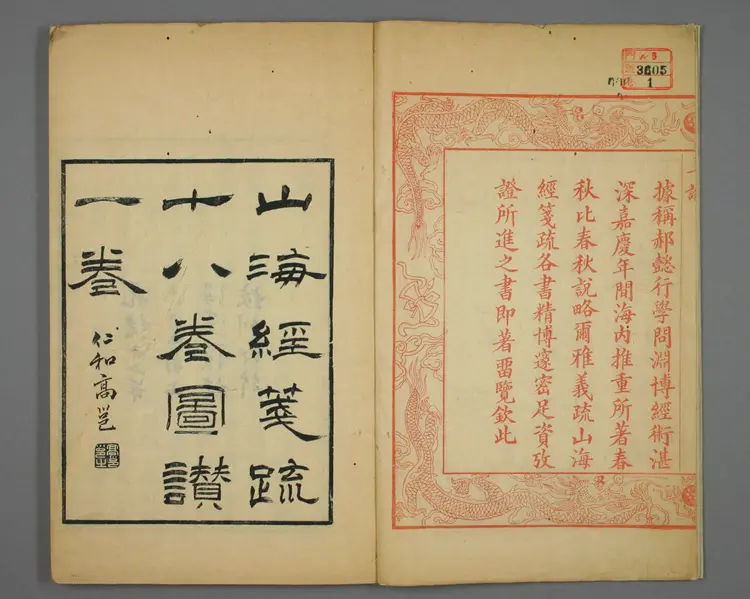 ル 5
3605
1
據稱郝懿行學問淵博經術湛
深嘉慶年間海内推重所著春
秋比春秋說略爾雅義疏山海
經箋疏各書精博邃密足資攷
證所進之書即著畱覽欽此
山海經箋疏
十八卷圖讚
一卷
仁和高邕